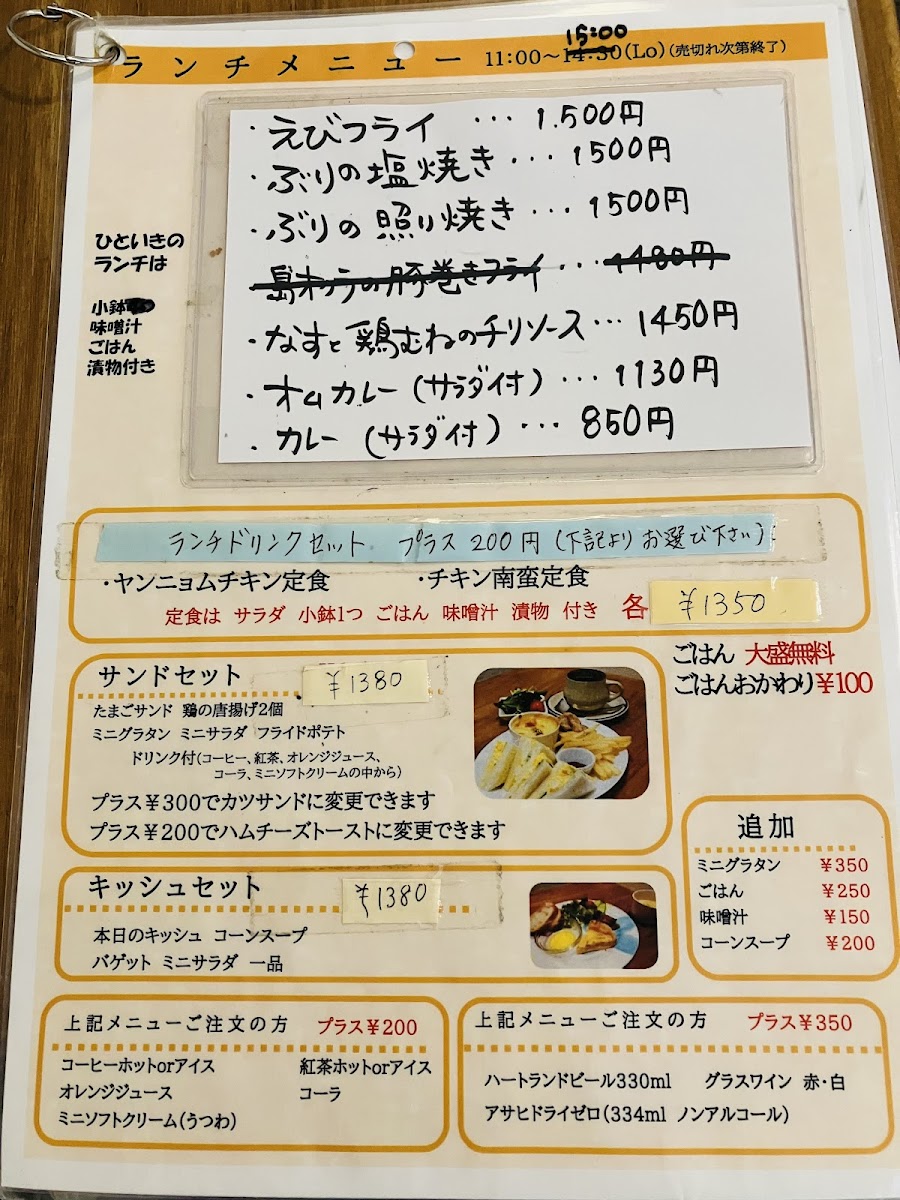 ランチメニュー 11:00〜14:30(Lo)(売切れ次第終了)
15:00
・えびフライ ・・・ 1.500円
・ぶりの塩焼き ・・・ 1500円
・ぶりの照り焼き ・・・ 1500円
島オクラの豚巻きフライ ・・・ 1480円
・なすと鶏むねのチリソース ・・・ 1450円
・オムカレー(サラダ付) ・・・ 1130円
・カレー(サラダ付) ・・・ 850円
ひといきの
ランチは
小鉢
味噌汁
ごはん
漬物付き
ランチドリンクセット プラス200円(下記よりお選び下さい)
・ヤンニョムチキン定食 ・チキン南蛮定食
定食は サラダ 小鉢1つ ごはん 味噌汁 漬物 付き 各 ¥1350
ごはん 大盛無料
ごはんおかわり¥100
サンドセット ¥1380
たまごサンド 鶏の唐揚げ2個
ミニグラタン ミニサラダ フライドポテト
ドリンク付(コーヒー、紅茶、オレンジジュース、
コーラ、ミニソフトクリームの中から)
プラス¥300でカツサンドに変更できます
プラス¥200でハムチーズトーストに変更できます
キッシュセット ¥1380
本日のキッシュ コーンスープ
バゲット ミニサラダ 一品
追加
ミニグラタン ¥350
ごはん ¥250
味噌汁 ¥150
コーンスープ ¥200
上記メニューご注文の方 プラス¥200
コーヒーホットorアイス 紅茶ホットorアイス
オレンジジュース コーラ
ミニソフトクリーム(うつわ)
上記メニューご注文の方 プラス¥350
ハートランドビール330ml グラスワイン 赤・白
アサヒドライゼロ(334ml ノンアルコール)